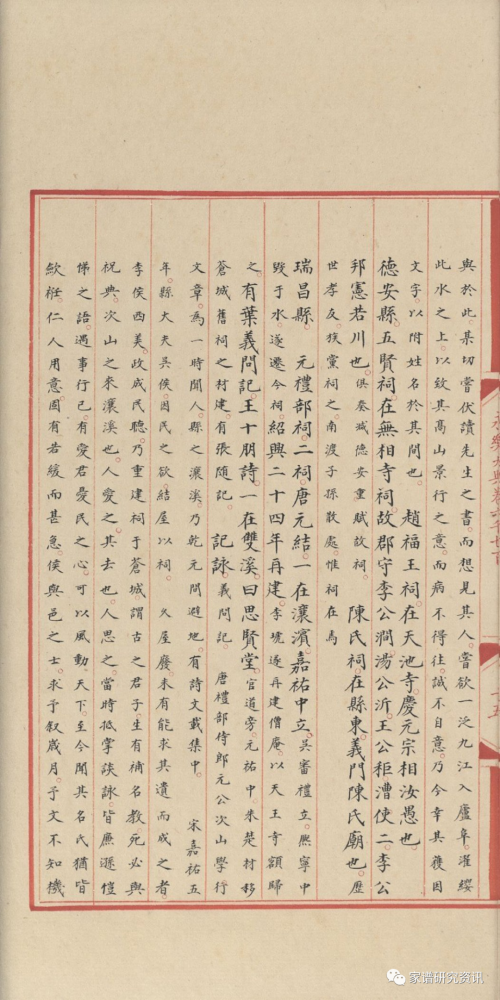 與於此某切嘗伏讀先生之書而想見其人嘗欲一泛九江入廬阜濯纓
此水之上以致其高山景行之意而病不得往誠不自意乃今幸其獲因
文字以附姓名於其間也 趙福王祠在天池寺慶元宗相汝愚也
德安縣五賢祠在無相寺祠故郡守李公澗湯公沂王公秬漕使二李公
邦憲若川也俱奏減德安重賦故祠 陳氏祠在縣東義門陳氏廟也歷
世孝友族黨祠之南渡子孫散處惟祠在焉
瑞昌縣 元禮部祠二祠唐元結一在瀼濱嘉祐中立吴審禮立熙寧中
毀于水遂遷今祠紹興二十四年再建李琥遂再建僧庵以天王寺額歸
之有葉義問記王十朋詩一在雙溪曰思賢堂官道旁元祐中朱楚材移
蒼城舊祠之材建有張隨記 記詠義問記 唐禮部侍郎元公次山學行
文章為一時聞人縣之瀼溪乃乾元間避地有詩文載集中 宋嘉祐五
年縣大夫吴侯因民之欲結屋以祠 久屋廢未有能求其遺而成之者
李侯西美政成民聽乃重建祠于蒼城謂古之君子生有補名教死必與
祝典次山之來瀼溪也人愛之其去也人思之當時抵掌談詠皆廉遜愷
悌之語遇事行己有愛君憂民之心可以風動天下至今聞其名氏猶皆
斂衽仁人用意固有若緩而甚急侯與邑之士求予叙歲月予文不知機
永樂大典卷
十五
家谱研究资讯